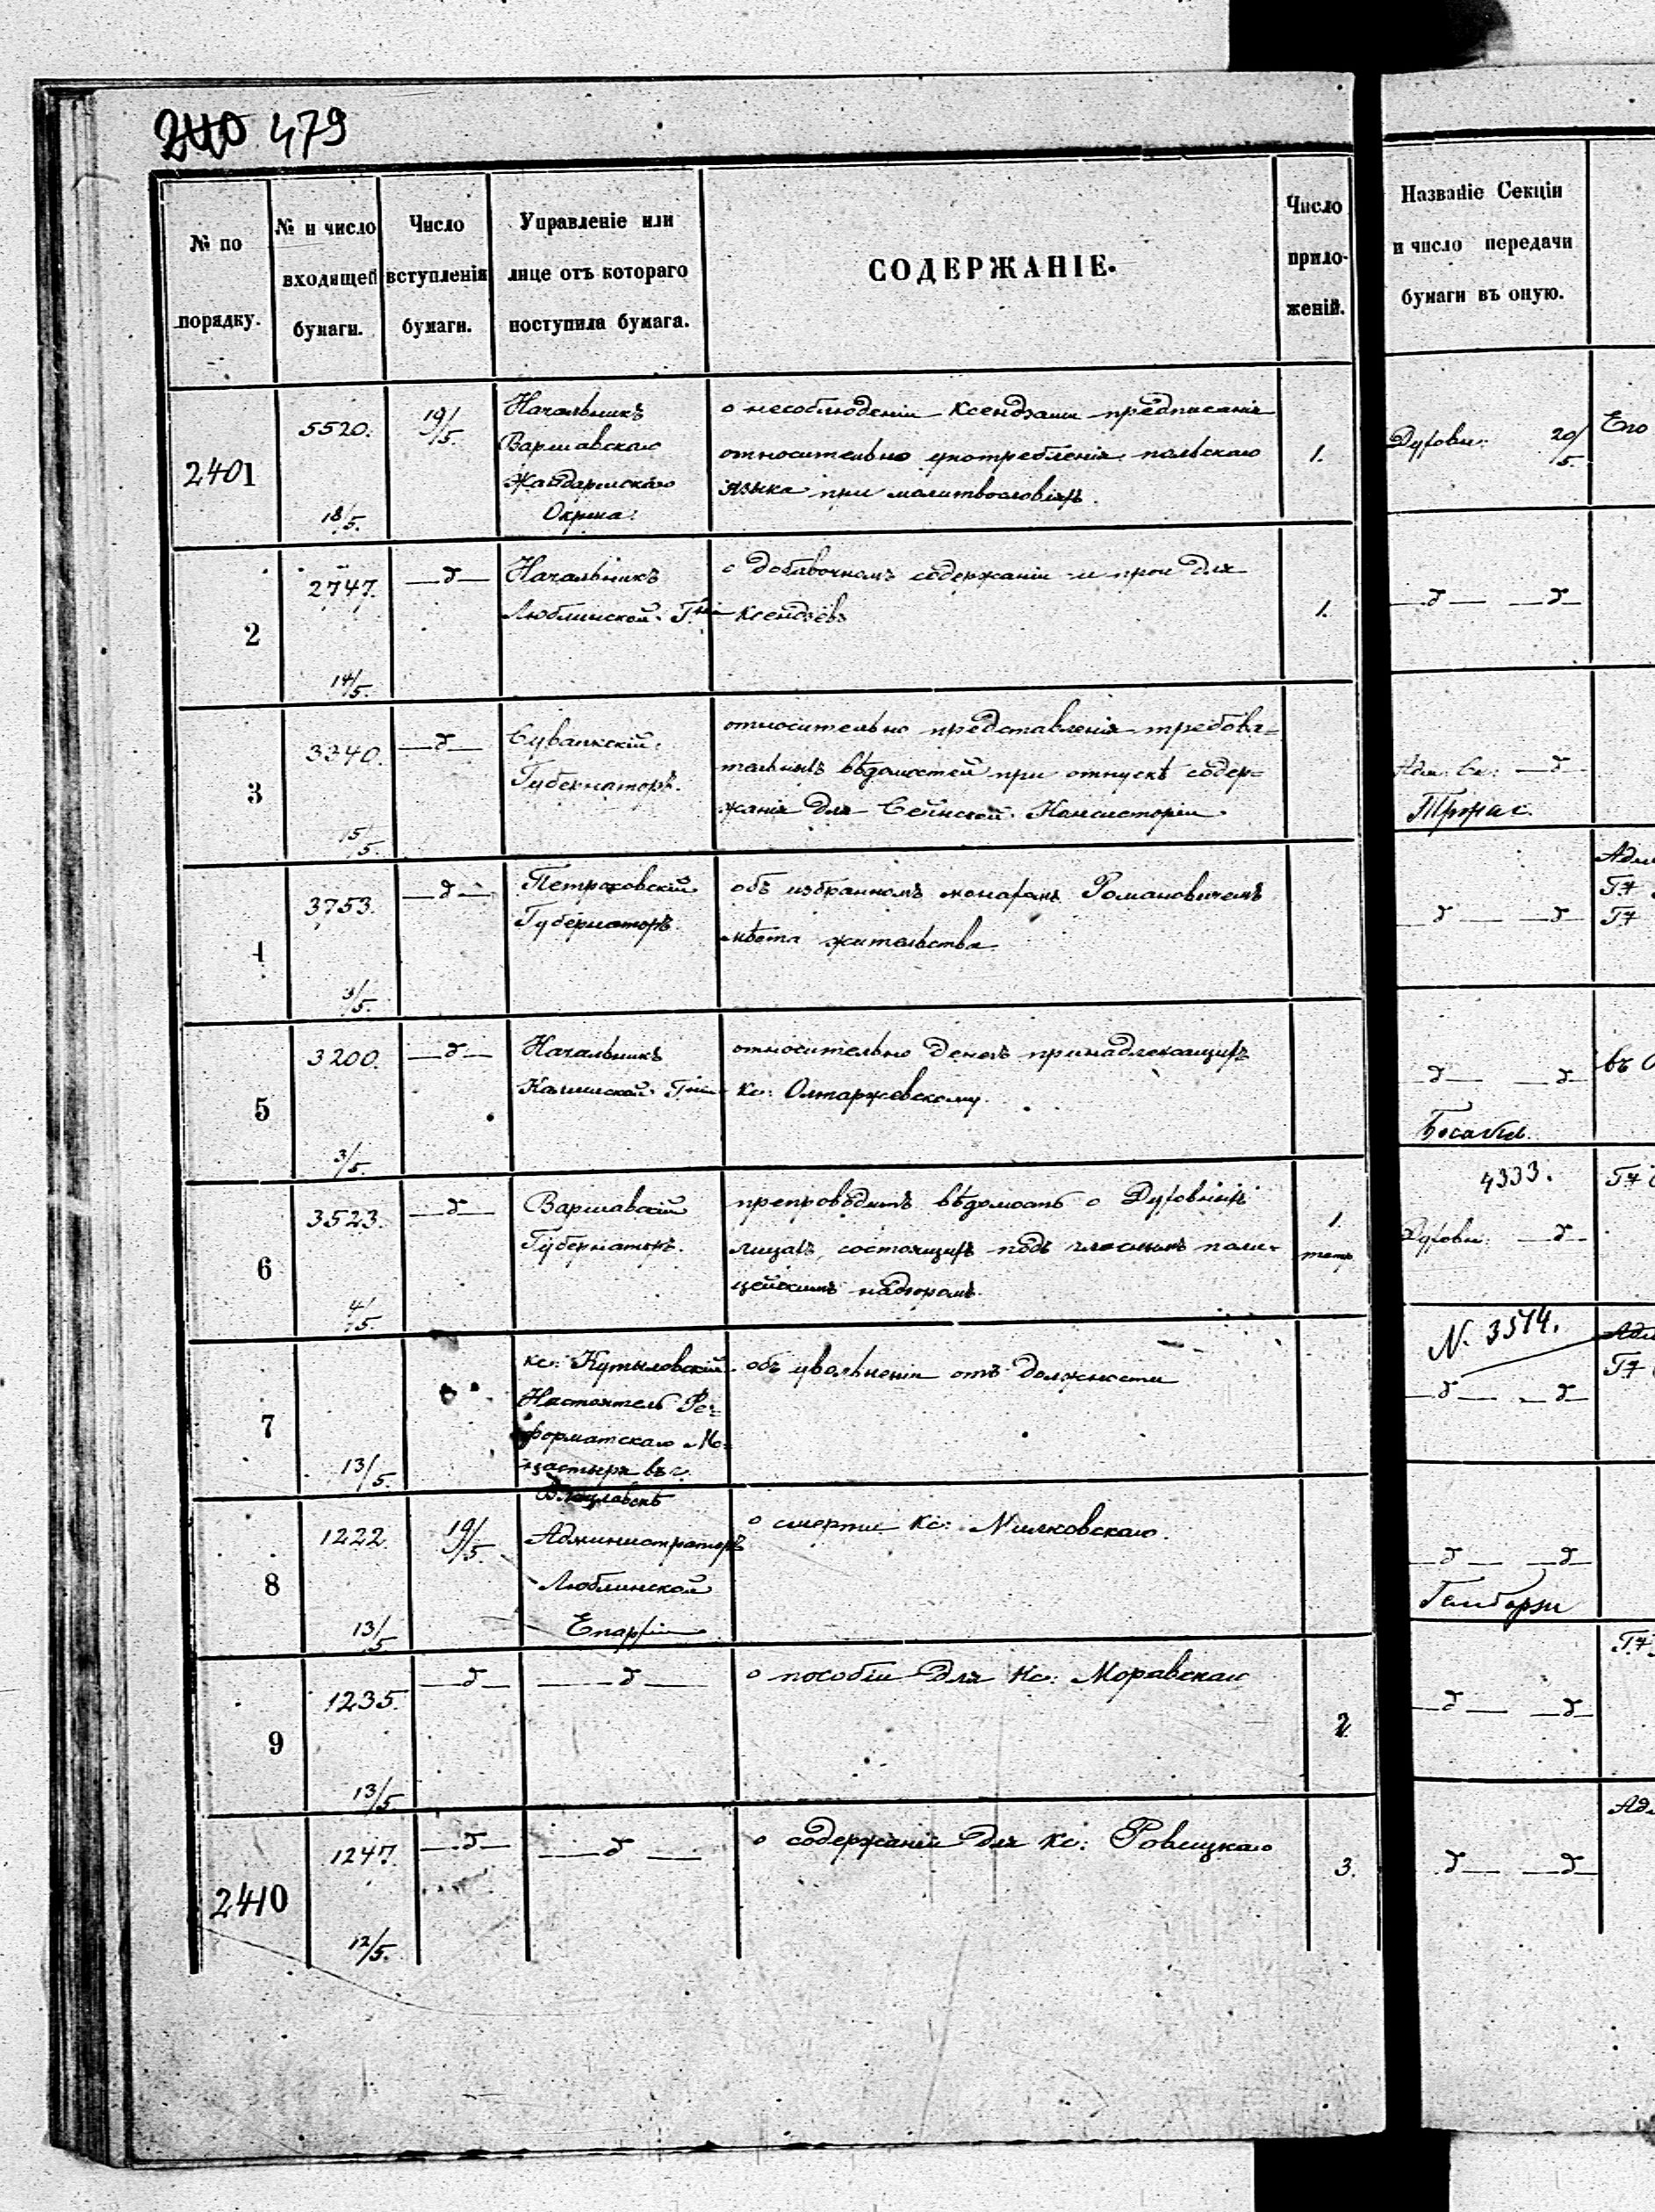 240 479
№ по порядку.
№ и число входящей бумаги.
Число вступленія бумаги.
Управленіе или лице отъ котораго поступила бумага.
СОДЕРЖАНІЕ.
Число приложеній.
Названіе Секціи и число передачи бумаги въ оную.
2401
5520.
18/5.
19/5.
Начальникъ
Варшавскаго
Жандармскаго
Округа.
о несоблюденіи Ксендзами предписанія
относительно употребленія польскаго
языка при молитвословіяхъ.
1.
Духовн: 20/5.
Его
2
2747.
14/5.
—д—
Начальникъ
Люблинской Гніи
о добавочномъ содержаніи и проч для
ксендзовъ
1.
—д— —д—
3
3340.
15/5.
—д—
Сувалкскій
Губернаторъ.
относительно представленія требова=
тельныхъ вѣдомостей при отпускѣ содер=
жанія для Сейнской Консисторіи.
Адм: Се: —д—
4
3753.
3/5.
—д—
Петроковскій
Губернаторъ.
объ избранномъ монахомъ Романовичемъ
мѣста жительства.
—д— —д—
5
3200.
3/5.
—д—
Начальникъ
Калишской Гніи
относительно денегъ принадлежащихъ
Кс: Олтаржевскому.
—д— —д—
въ
6
3523.
4/5.
—д—
Варшавскій
Губернаторъ.
препроводитъ вѣдомость о Духовныхъ
лицахъ, состоящихъ подъ гласнымъ поли=
цейскимъ надзоромъ.
1
тетр
4333.
Духовн: —д—
7
13/5.
кс: Кутыловскій
Настоятель Ре=
форматскаго Мо=
настыря въ г.
Влоцлавскѣ
объ увольненіи отъ должности
N. 3514.
—д— —д—
8
1222.
13/5
19/5.
Администраторъ
Люблинской
Епархіи
о смерти Кс: Милковскаго.
—д— —д—
9
1235.
13/5.
—д—
—д—
о пособіи для Кс: Моравскаго
2
—д— —д—
2410
1247.
12/5.
—д—
—д—
о содержаніи для Кс: Ровицкаго
3.
—д— —д—